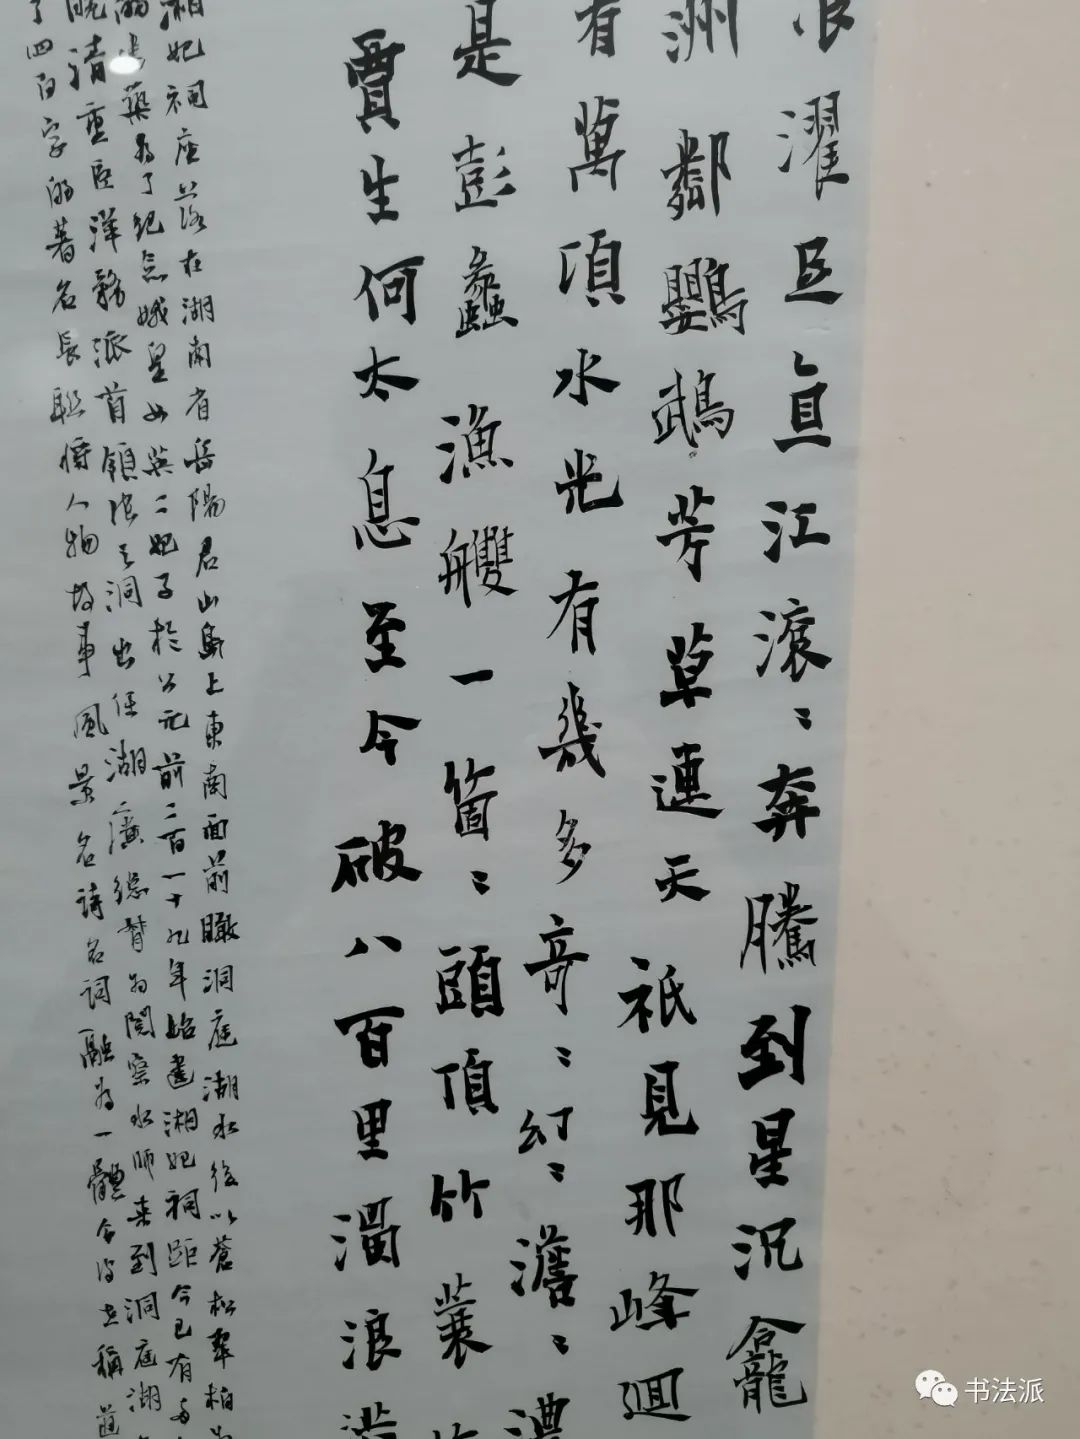 濯足亘江滚〻奔騰到星沉龕
洲鄰鸚鵡芳草連天祇見那峰迴
有萬頃水光有幾多奇〻幻〻澹〻濃
是彭蠡漁艭一箇〻頭頂竹蓑
賈生何太息至今破八百里濁浪
湘妃祠座落在湖南省岳陽君山島上東南面前瞰洞庭湖水後以蒼松翠柏為
藥為了紀念娥皇女英二妃子於公元前二百一十九年始建湘妃祠距今已有
晚清重臣洋務派首領張之洞出任湖廣總督為閱察水師来到洞庭湖
了四百字的著名長聯將人物故事風景名詩名詞融為一體合
书法派